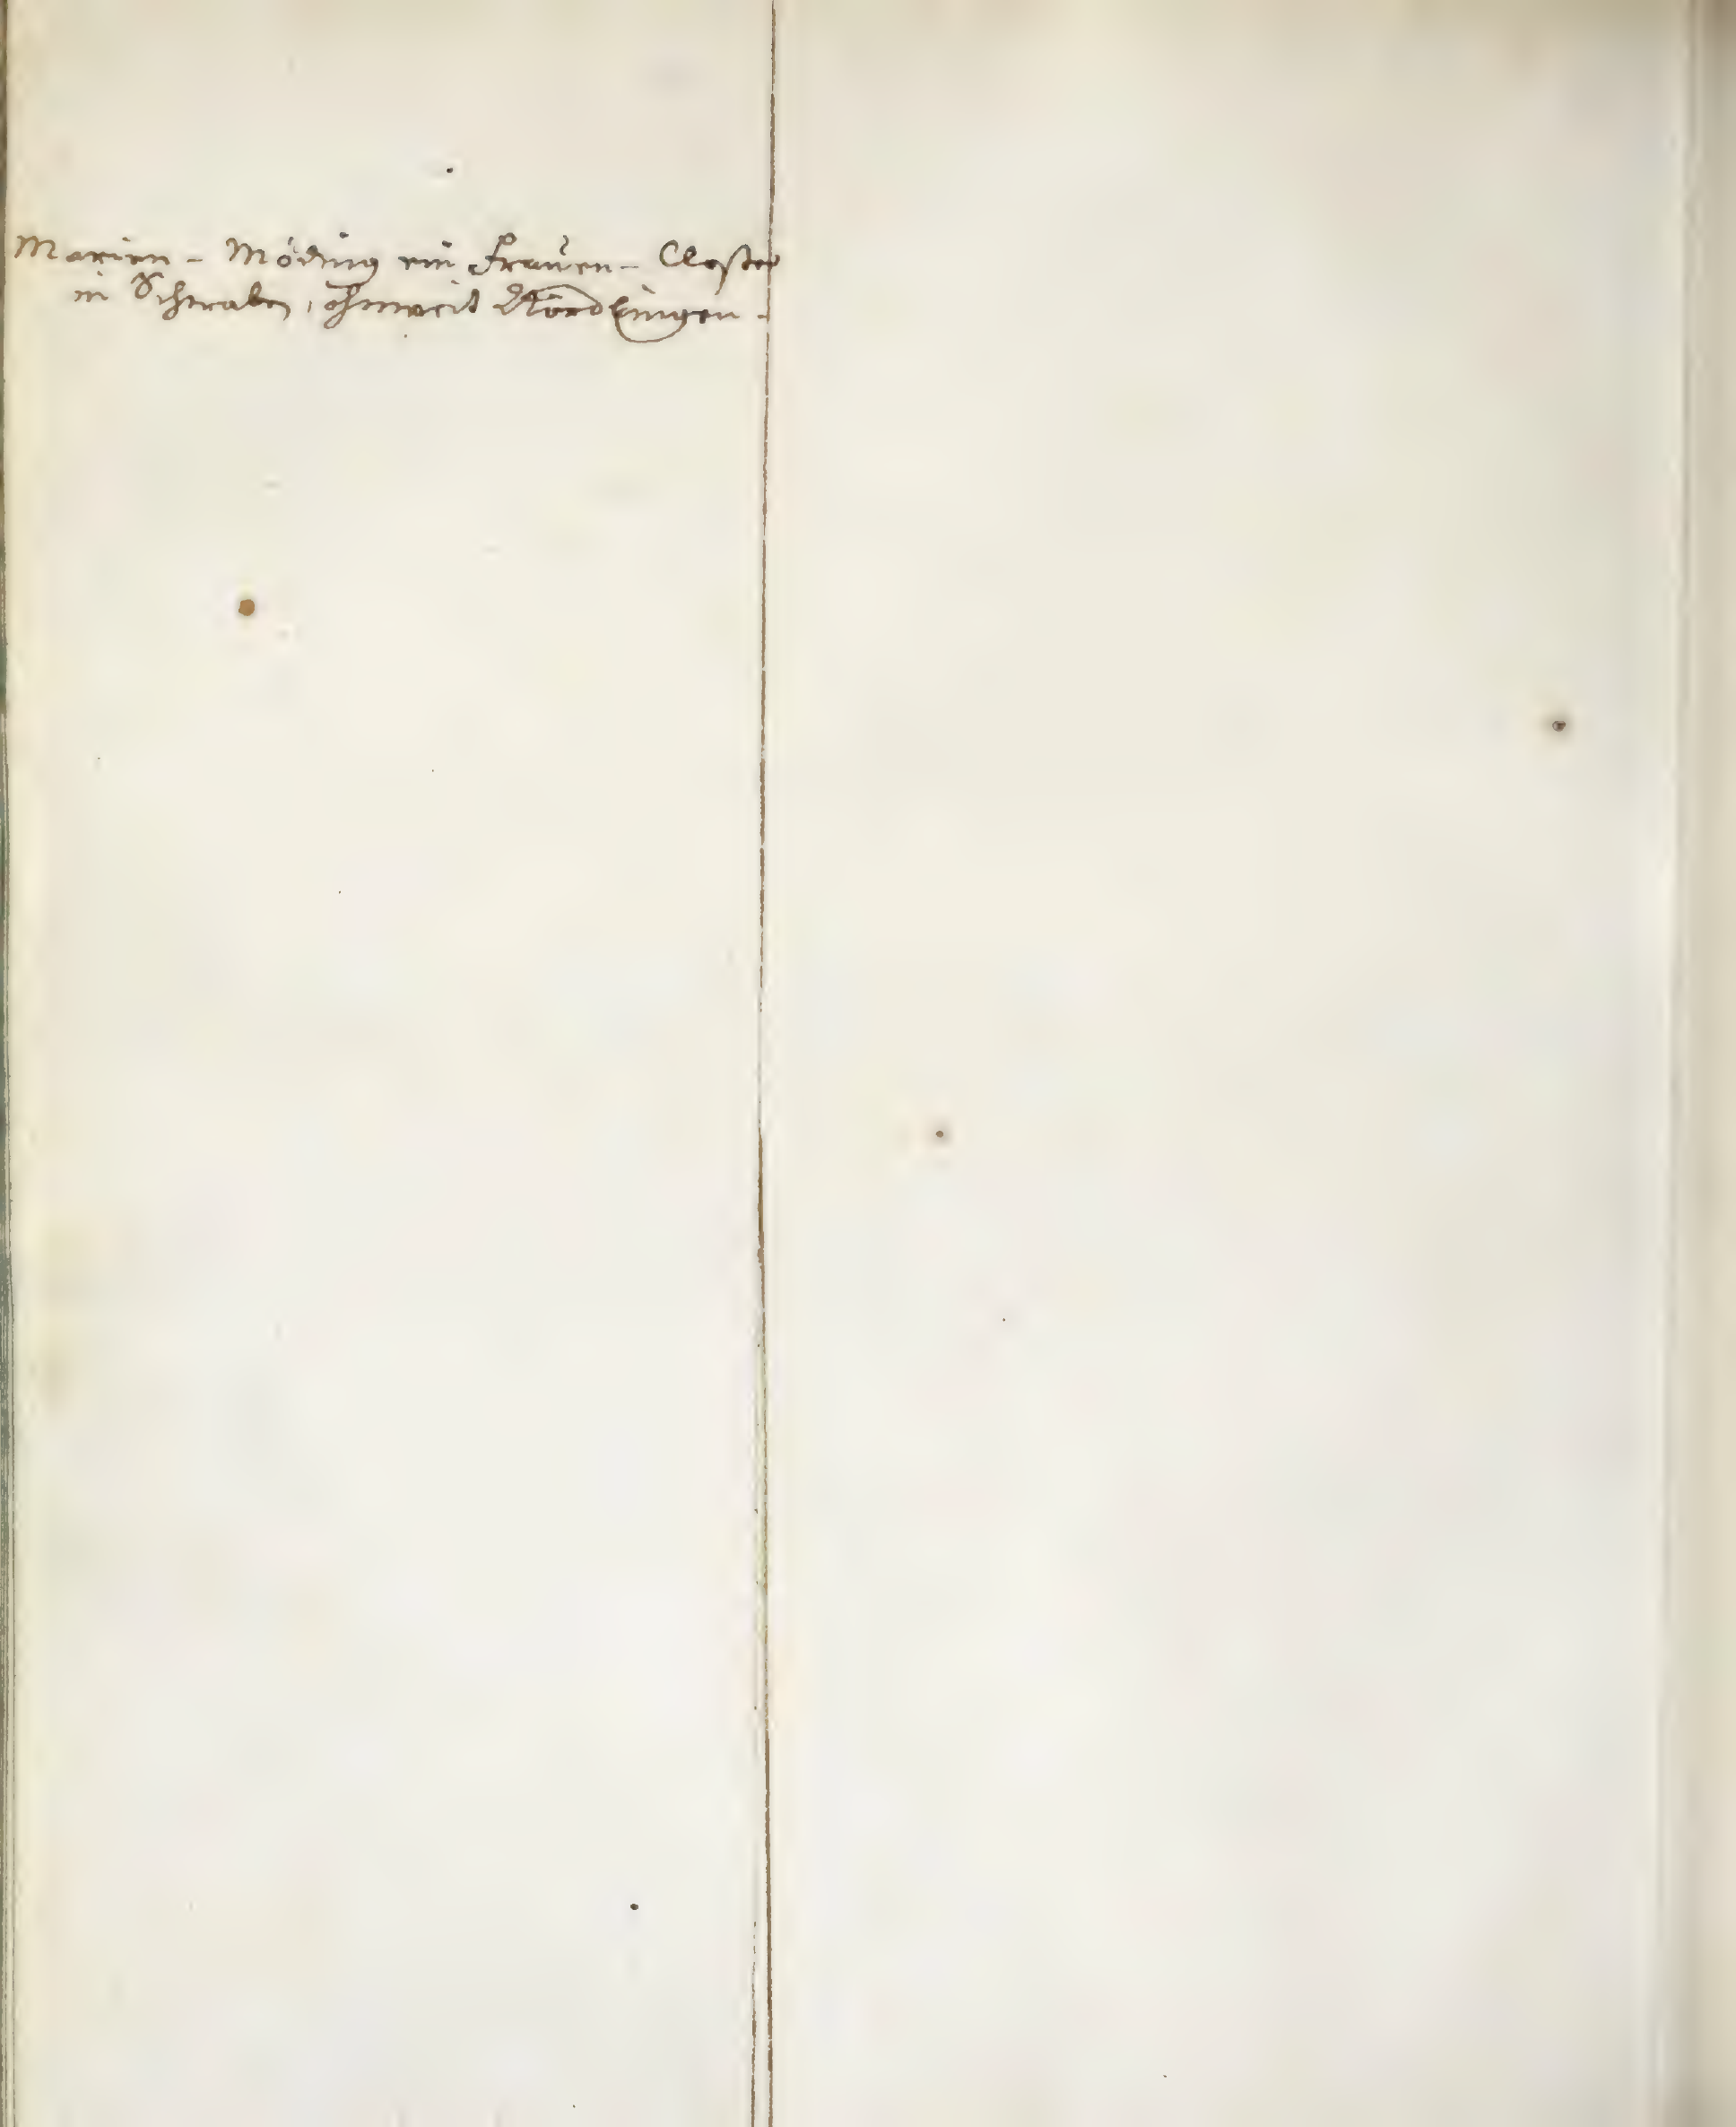 Marien - Möding ein Frauen - Closter
in Schwaben, ohnweit Nördlingen.